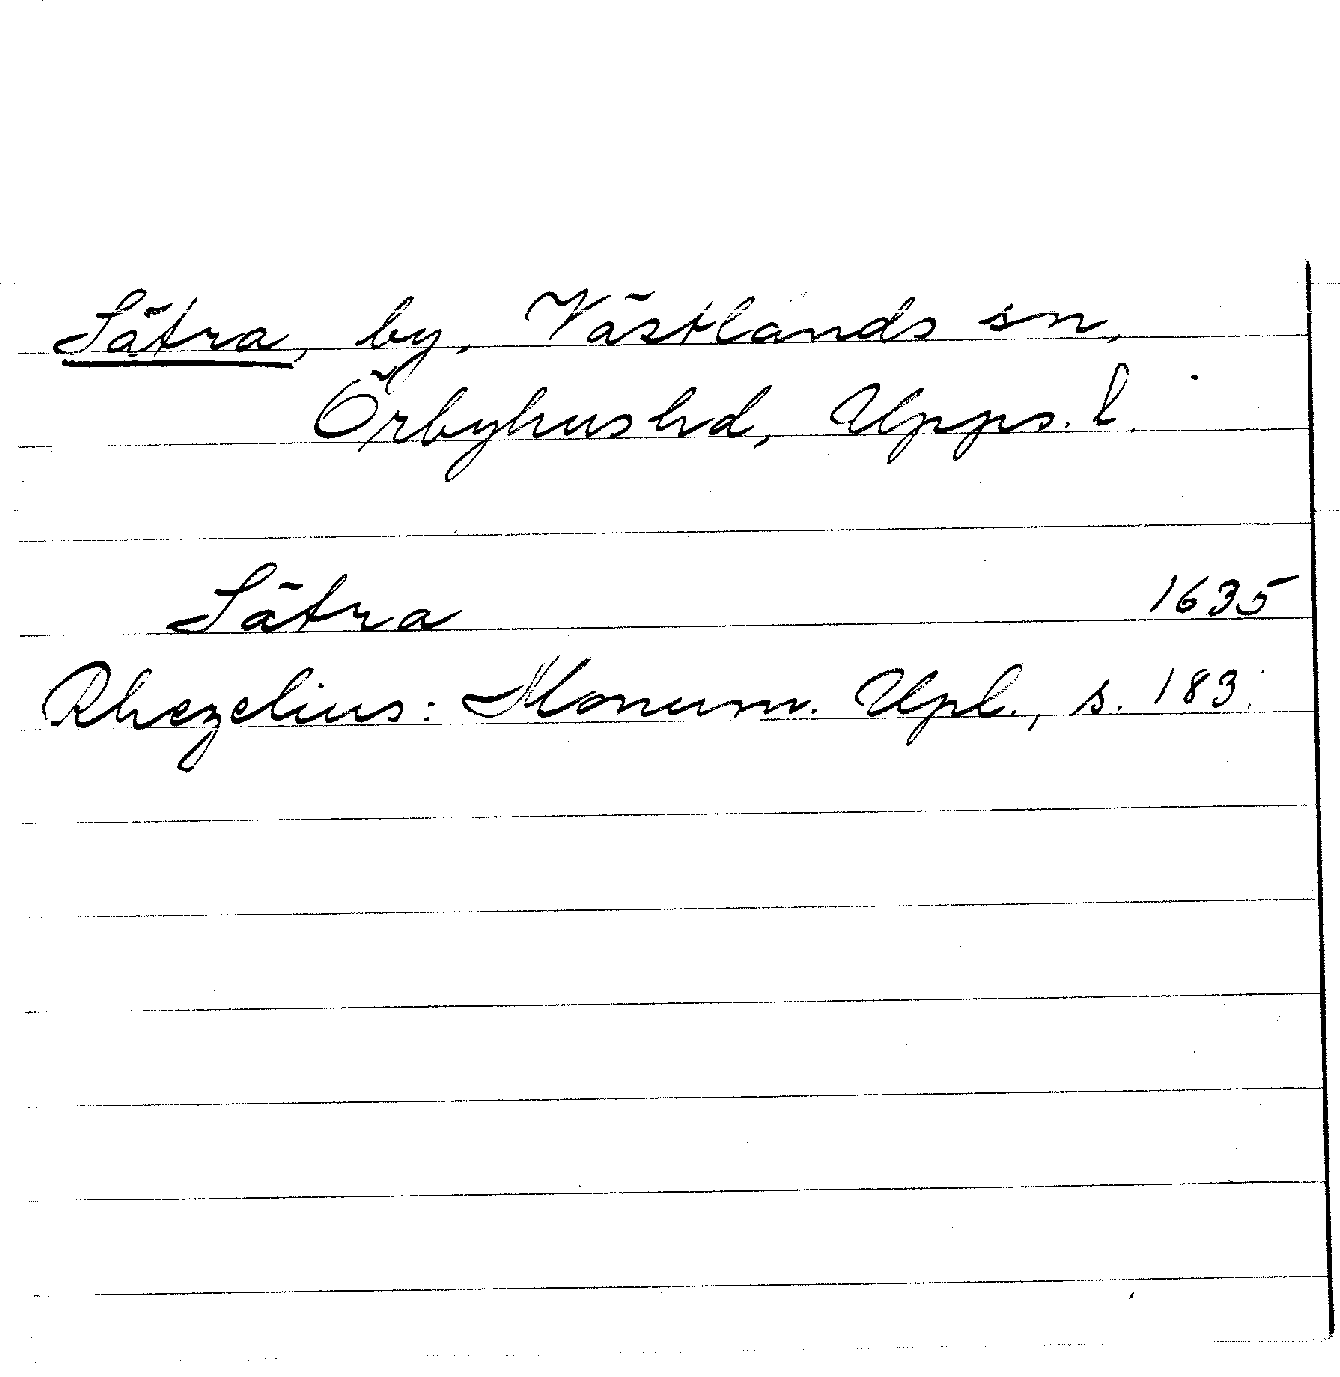 Sätra, by, Västlands sn,
Örbyhus hd, Upps. l.
Sätra 1635
Rhezelius: Monum. Upl., s. 183.